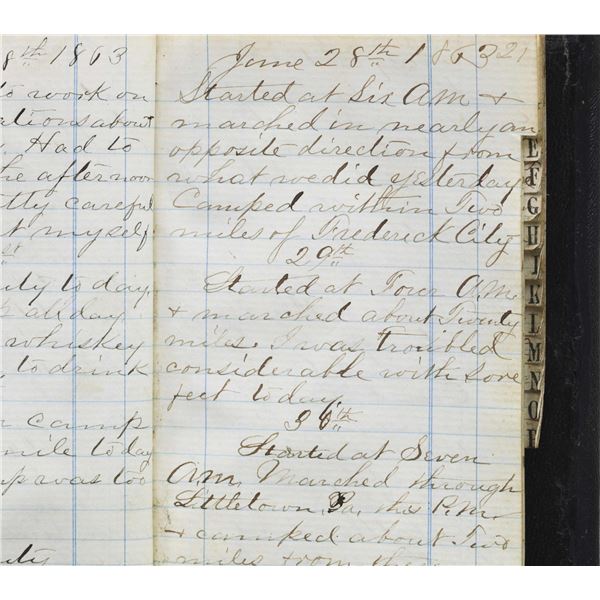 8th 1863
to work on
ations about
Had to
he afternoon
tty careful
t myself
st
uty to day
all day
whiskey
to drink
camp
mile today
p was too
uty
June 28th 1863 21
Started at Six AM &
marched in nearly an
opposite direction from
what we did yesterday
Camped within Two
miles of Frederick City
29th
Started at Four A.M.
& marched about Twenty
miles. I was troubled
considerable with Sore
feet today
30th
Started at Seven
AM, Marched through
Littletown, Pa, this P.M.
& camped about Two
miles from there
E
F
G
H
J
K
L
M
N
O